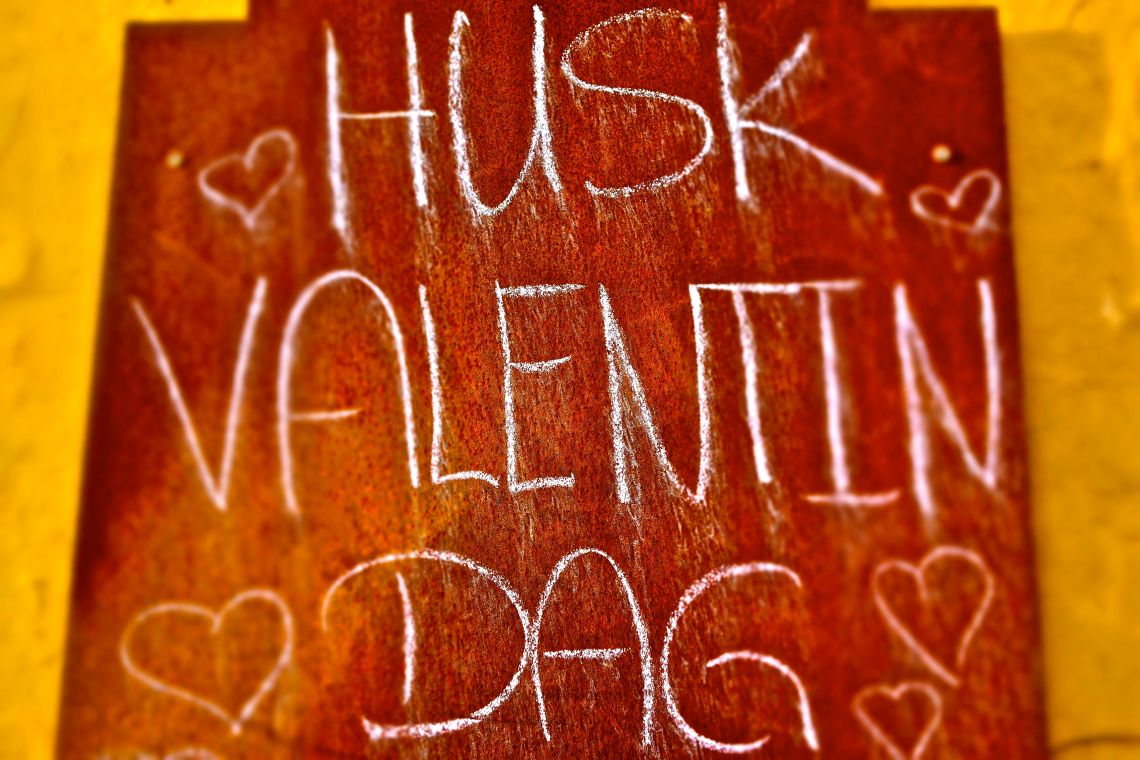 HUSK
VALENTIN
DAG